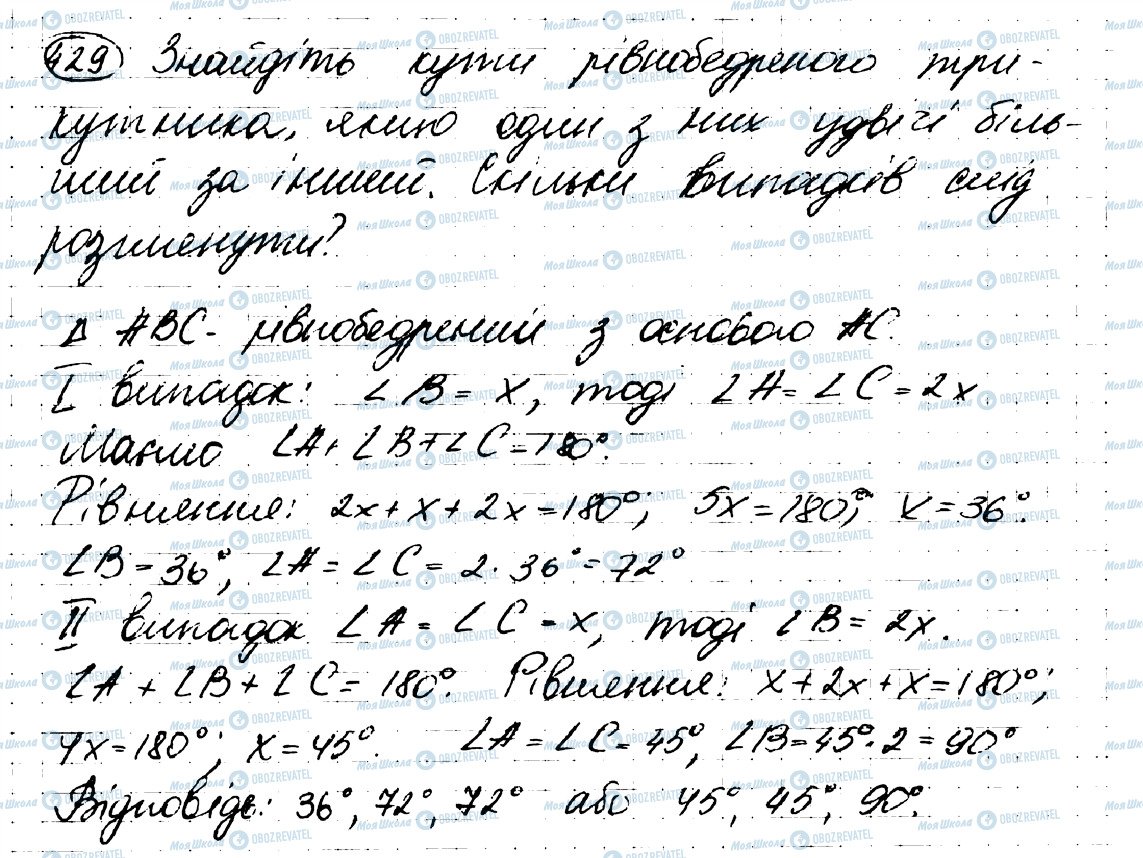 429 Знайдіть кути рівнобедреного три-
кутника, якщо один з них удвічі біль-
ший за інший. Скільки випадків слід
розглянути?
Δ ABC - рівнобедрений з основою AC.
I випадок: ∠B = x, тоді ∠A = ∠C = 2x
Маємо ∠A + ∠B + ∠C = 180°.
Рівняння: 2x + x + 2x = 180°; 5x = 180°; x = 36°.
∠B = 36°, ∠A = ∠C = 2 · 36° = 72°
II випадок ∠A = ∠C = x, тоді ∠B = 2x.
∠A + ∠B + ∠C = 180°. Рівняння: x + 2x + x = 180°;
4x = 180°; x = 45°. ∠A = ∠C = 45°, ∠B = 45° · 2 = 90°
Відповідь: 36°, 72°, 72° або 45°, 45°, 90°.